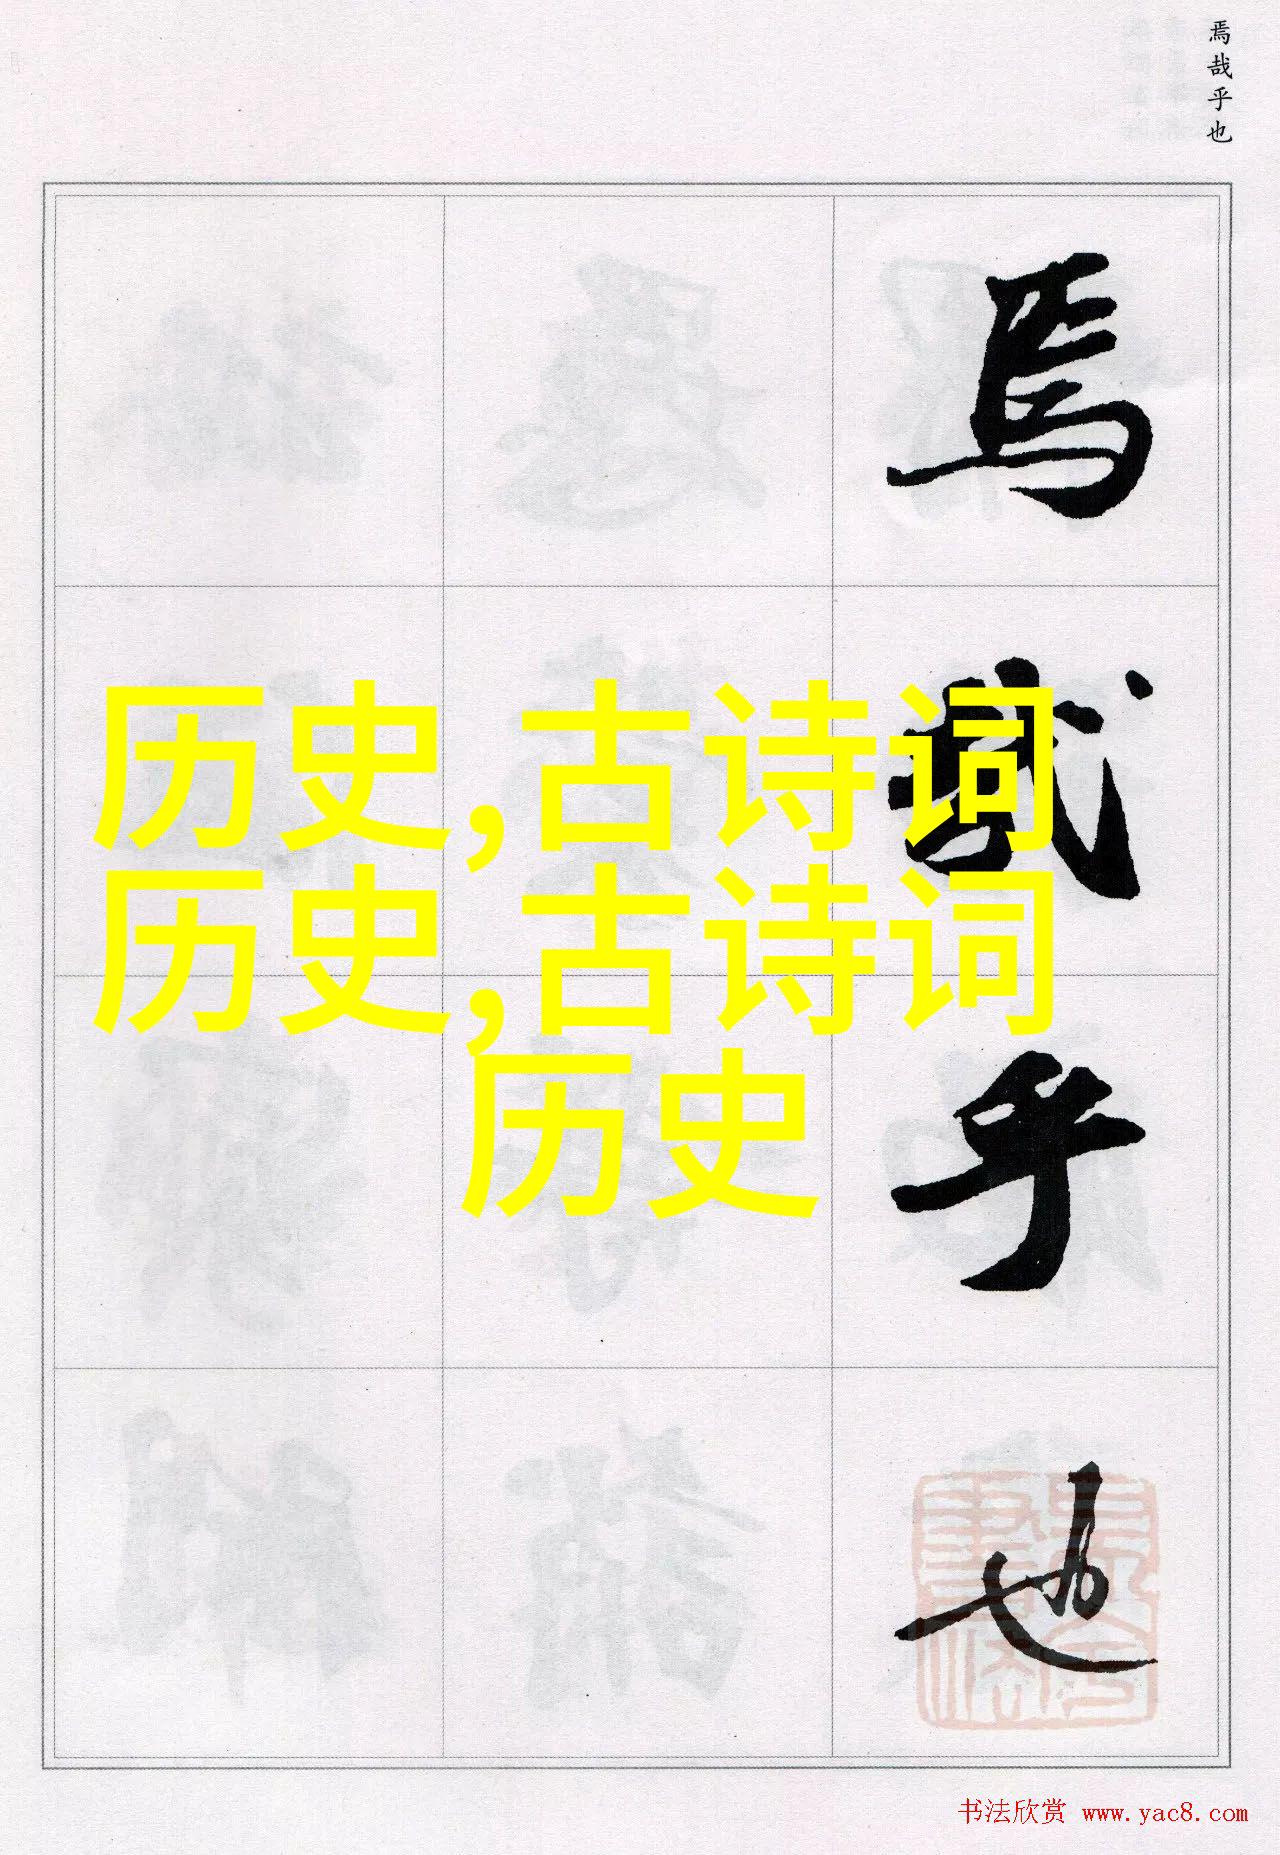 焉哉乎也
焉
哉
乎
也
历史,古诗词
历史,古诗词
历史
书法欣赏 www.yac8.com